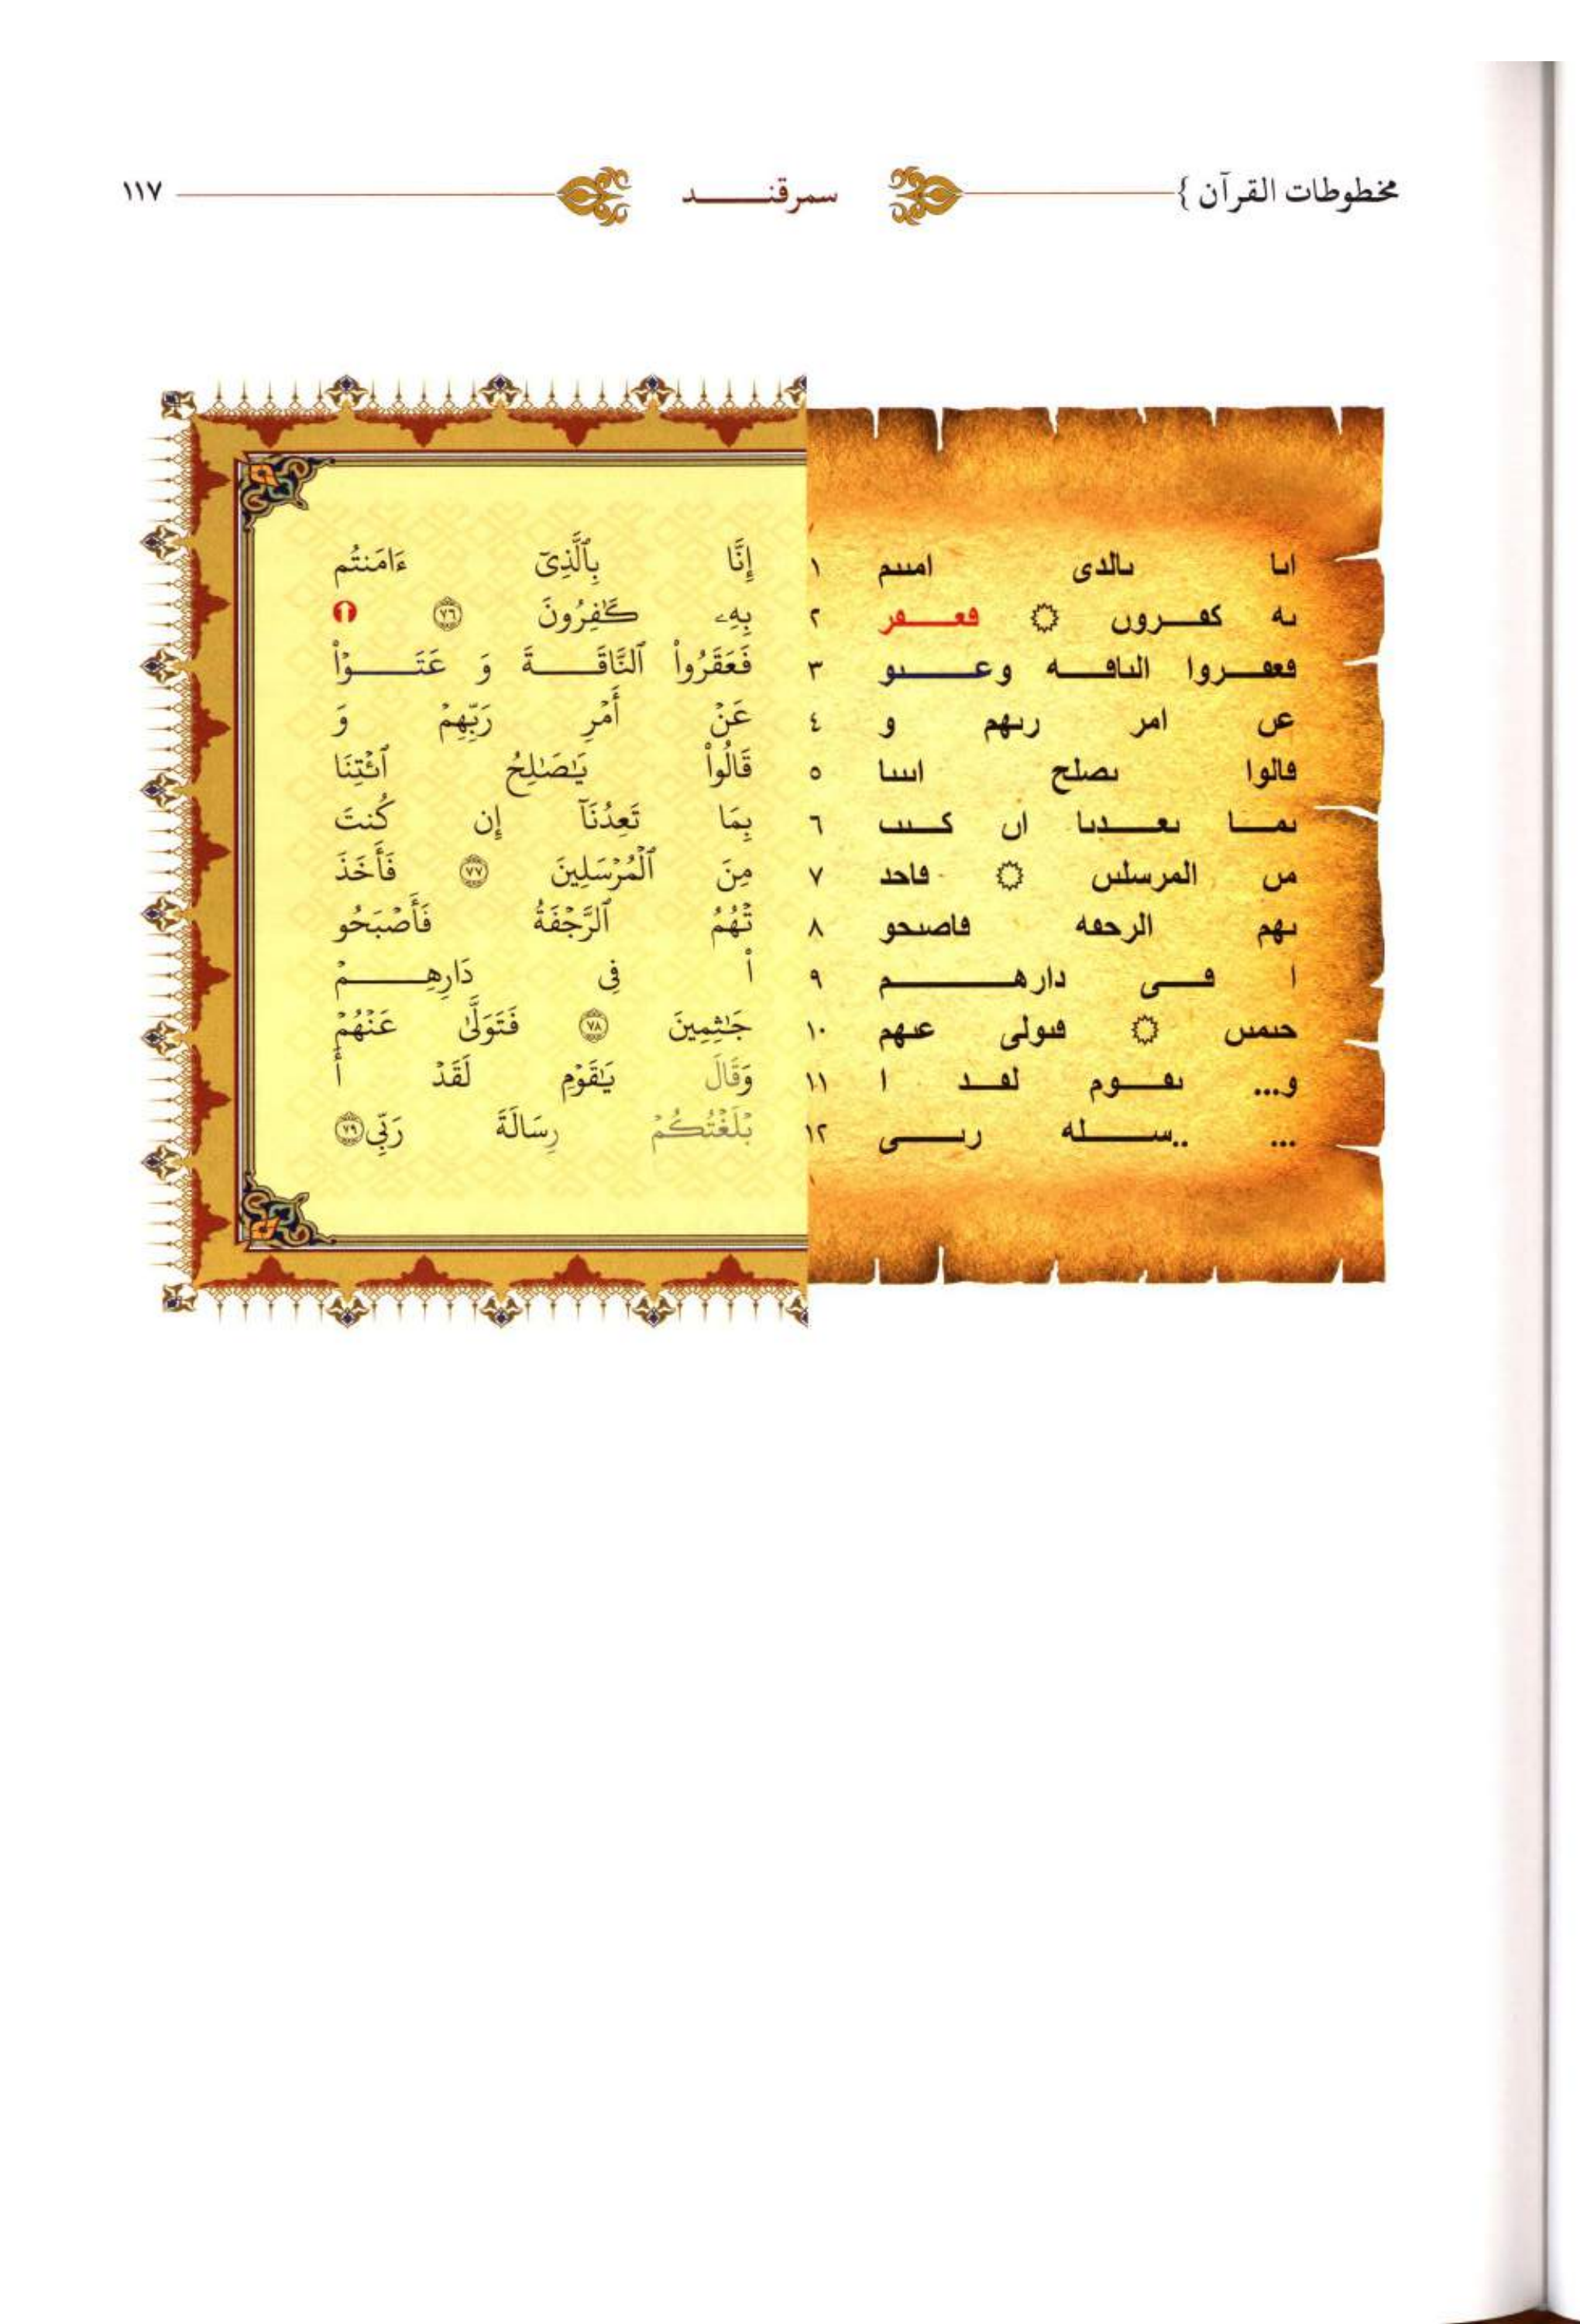 مخطوطات القرآن } سمرقنــــــد ١١٧
اٮا ٮالدى امٮٮم ١ إِنَّا بِٱلَّذِىٓ ءَامَنتُم
ٮه كڡـــروں ۞ ڡعــــڡر ٢ بِهِۦ كَـٰفِرُونَ ٧٦ ❶
ڡعڡـــروا الٮاڡـــه وعـــــٮو ٣ فَعَقَرُوا۟ ٱلنَّاقَـــــةَ وَ عَتَـــــوْا۟
عں امر رٮهم و ٤ عَنْ أَمْرِ رَبِّهِمْ وَ
ڡالوا ٮصلح اٮٮٮا ٥ قَالُوا۟ يَـٰصَـٰلِحُ ٱئْتِنَا
ٮمـــا ٮعـــدٮا اں كـــٮٮ ٦ بِمَا تَعِدُنَآ إِن كُنتَ
مں المرسلٮں ۞ ڡاحد ٧ مِنَ ٱلْمُرْسَلِينَ ٧٧ فَأَخَذَ
ٮهم الرحڡه ڡاصٮحو ٨ تْهُمُ ٱلرَّجْفَةُ فَأَصْبَحُو
ا ڡـــى دارهـــــــم ٩ ا۟ فِى دَارِهِـــــــمْ
حٮمٮں ۞ ڡٮولى عٮهم ١٠ جَـٰثِمِينَ ٧٨ فَتَوَلَّىٰ عَنْهُمْ
و... ٮڡـــوم لڡـــد ا ١١ وَقَالَ يَـٰقَوْمِ لَقَدْ أَ
... ..ســـــله رٮـــــى ١٢ بْلَغْتُكُمْ رِسَالَةَ رَبِّى ٧٩